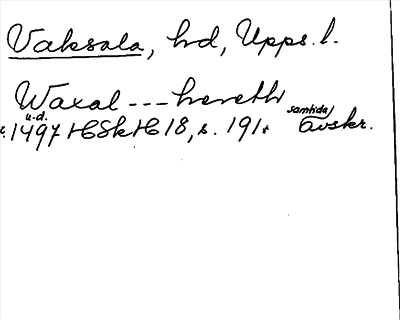 Vaksala, hd, Upps. l.
Waxal --- hereth
u.d. samtida
c. 1497 HSkH 18, s. 191. avskr.